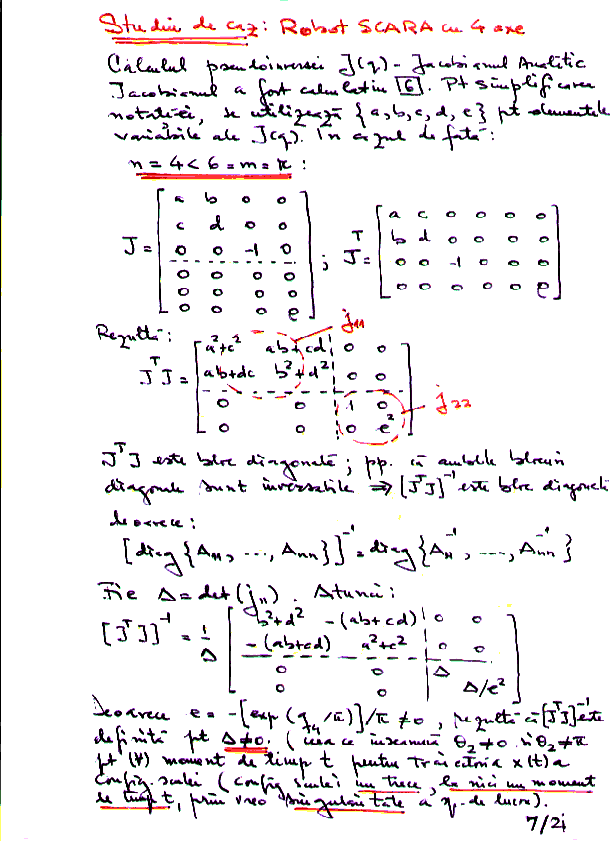 Studiu de caz: Robot SCARA cu 4 axe
Calculul pseudoinversei J(q) - Jacobianul Analitic
Jacobianul a fost calculat in [6]. Pt simplificarea
notatiei, se utilizează {a,b,c,d,e} pt elementele
variabile ale J(q). In cazul de fată:
n = 4 < 6 = m = r :
J = [ a b 0 0
c d 0 0
0 0 -1 0
0 0 0 0
0 0 0 0
0 0 0 e ] ; Jᵀ = [ a c 0 0 0 0
b d 0 0 0 0
0 0 -1 0 0 0
0 0 0 0 0 e ]
Rezultă:
JᵀJ = [ a²+c² ab+cd 0 0
ab+dc b²+d² 0 0
0 0 1 0
0 0 0 e² ]
j11
j22
JᵀJ este bloc diagonală; pp. că ambele blocuri
diagonale sunt inversabile ⇒ [JᵀJ]⁻¹ este bloc diagonală
deoarece:
[diag{A11, ..., Ann}]⁻¹ = diag{A11⁻¹, ..., Ann⁻¹}
Fie Δ = det(j11). Atunci:
[JᵀJ]⁻¹ = 1/Δ [ b²+d² -(ab+cd) 0 0
-(ab+cd) a²+c² 0 0
0 0 Δ
0 0 Δ/e² ]
Deoarece e = -[exp(q4/π)]/π ≠ 0, rezultă că [JᵀJ]⁻¹ este
definită pt Δ≠0. (ceea ce inseamnă θ2≠0 si θ2≠π
pt (∀) moment de timp t pentru traiectoria x(t) a
config. sculei (config sculei nu trece, la nici un moment
de timp t, prin vreo singularitate a sp. de lucru).
7/21